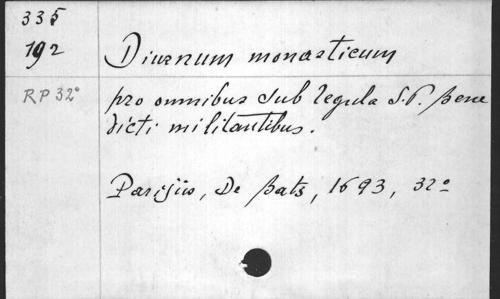 335
192
Diurnum monasticum
RP 32°
pro omnibus sub regula S. P. Bene
dicti militantibus.
Parisiis, De Bats, 1693, 32°